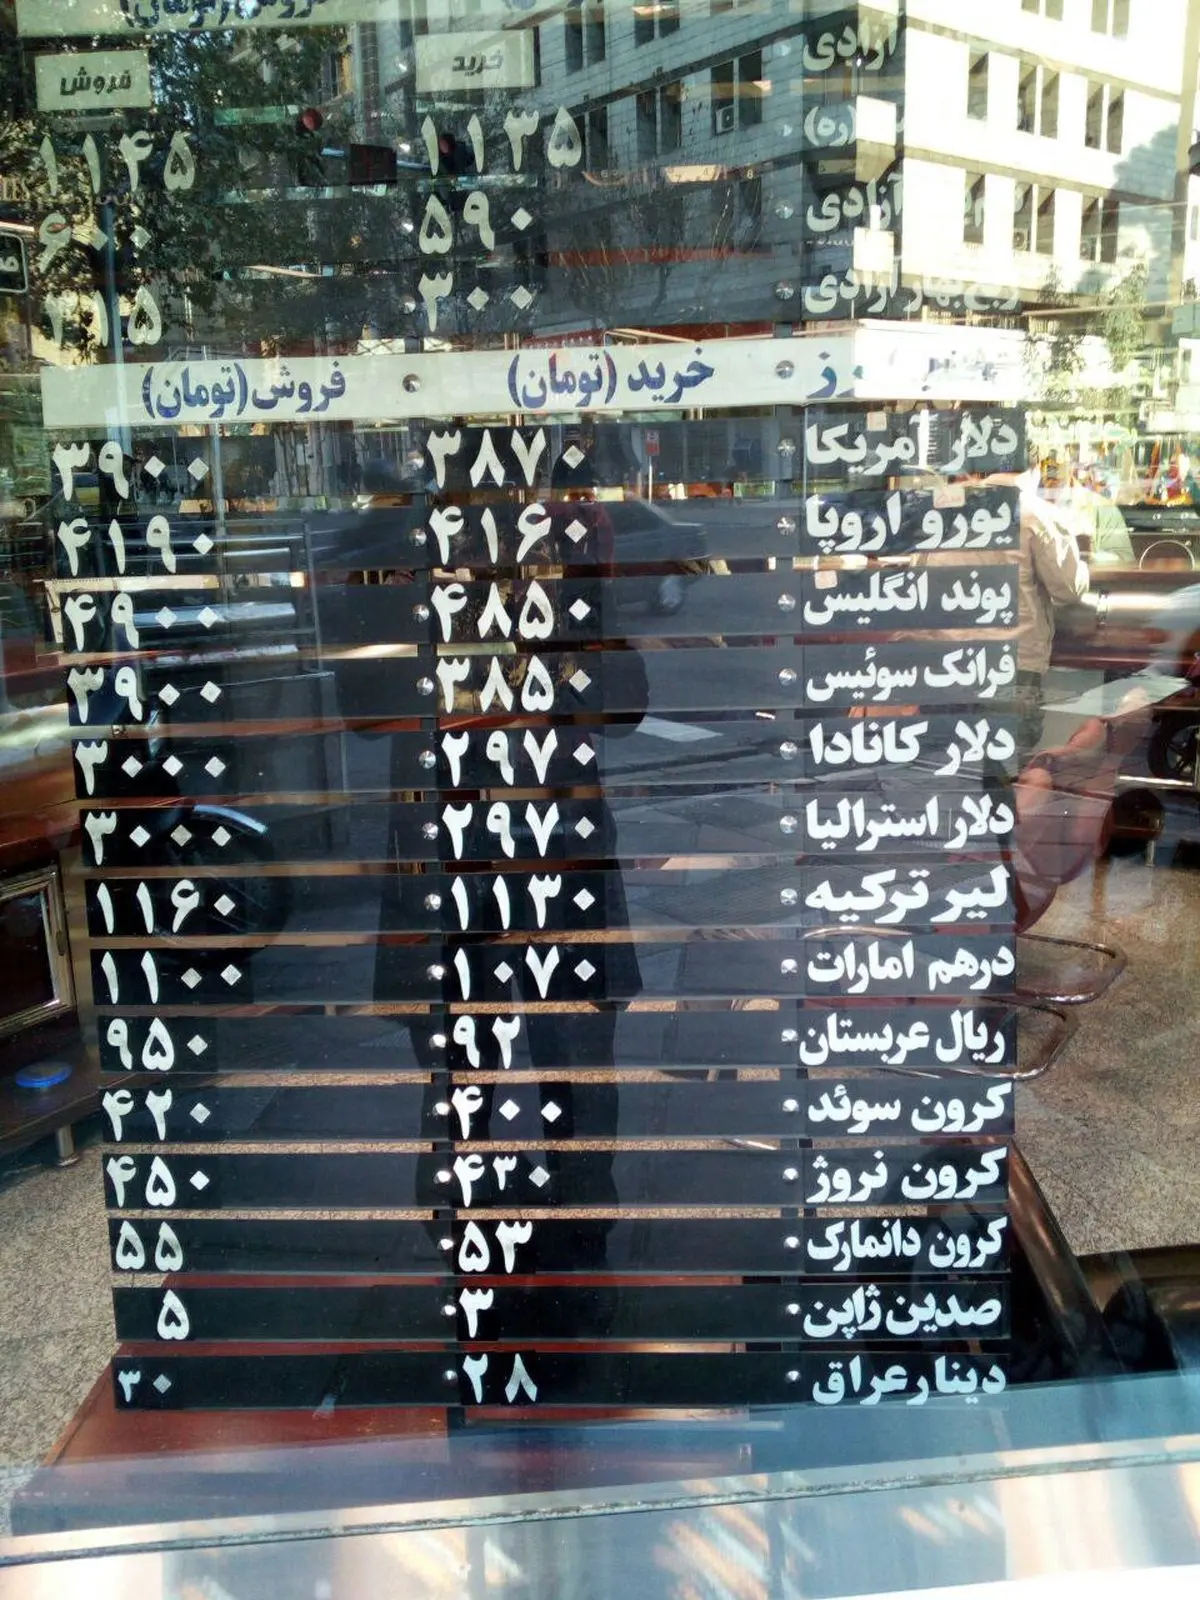 فروش(تومان)
خرید فروش
آزادی
(ره) ۱۱۳۵ ۱۱۴۵
آزادی ۵۹۰ ۶۰۰
ربع بهار آزادی ۳۰۰ ۳۱۵
خرید (تومان) فروش(تومان)
دلار آمریکا ۳۸۷۰ ۳۹۰۰
یورو اروپا ۴۱۶۰ ۴۱۹۰
پوند انگلیس ۴۸۵۰ ۴۹۰۰
فرانک سوئیس ۳۸۵۰ ۳۹۰۰
دلار کانادا ۲۹۷۰ ۳۰۰۰
دلار استرالیا ۲۹۷۰ ۳۰۰۰
لیر ترکیه ۱۱۳۰ ۱۱۶۰
درهم امارات ۱۰۷۰ ۱۱۰۰
ریال عربستان ۹۲ ۹۵۰
کرون سوئد ۴۰۰ ۴۲۰
کرون نروژ ۴۳۰ ۴۵۰
کرون دانمارک ۵۳ ۵۵
صدین ژاپن ۳ ۵
دینار عراق ۲۸ ۳۰